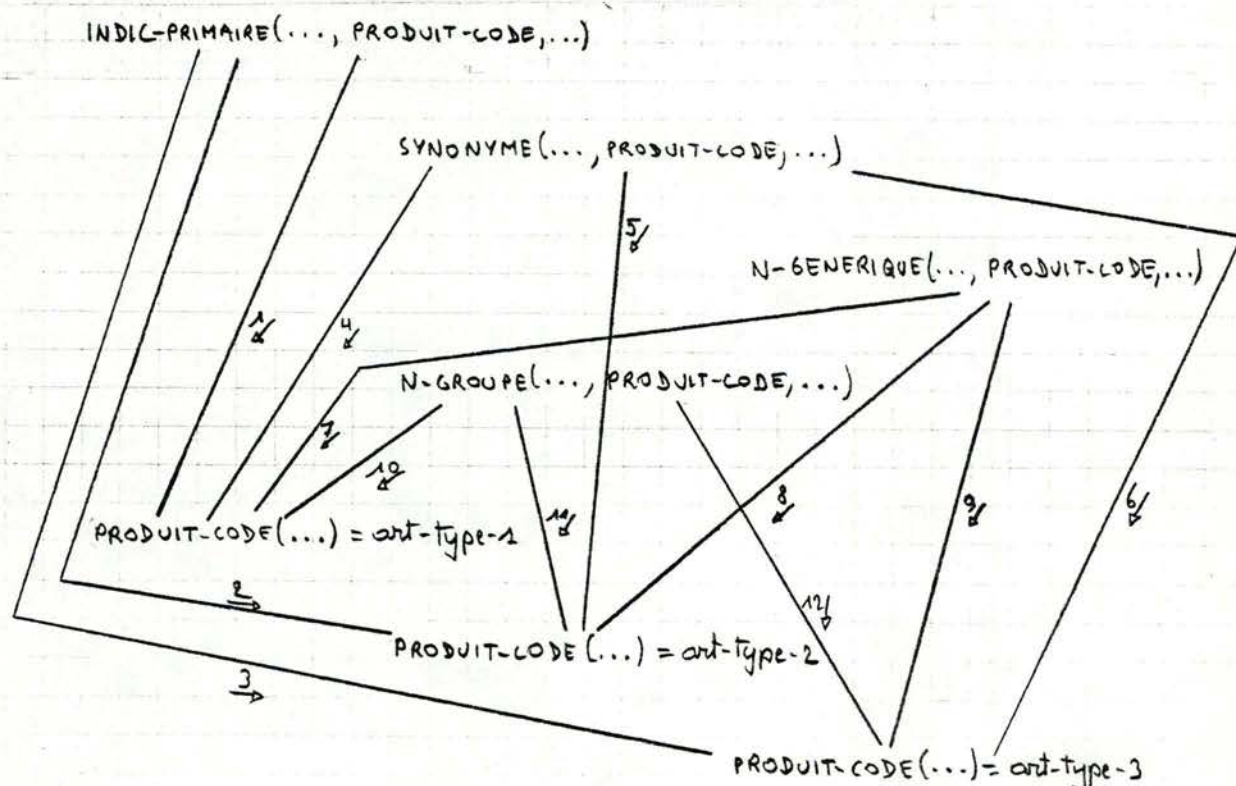 INDIC-PRIMAIRE(..., PRODUIT-CODE,...)
SYNONYME(..., PRODUIT-CODE,...)
5
N-GENERIQUE(..., PRODUIT-CODE,...)
1
4
N-GROUPE(..., PRODUIT-CODE,...)
7
10
11
8
9
6
PRODUIT-CODE(...) = art-type-1
2
12
PRODUIT-CODE(...) = art-type-2
3
PRODUIT-CODE(...) = art-type-3